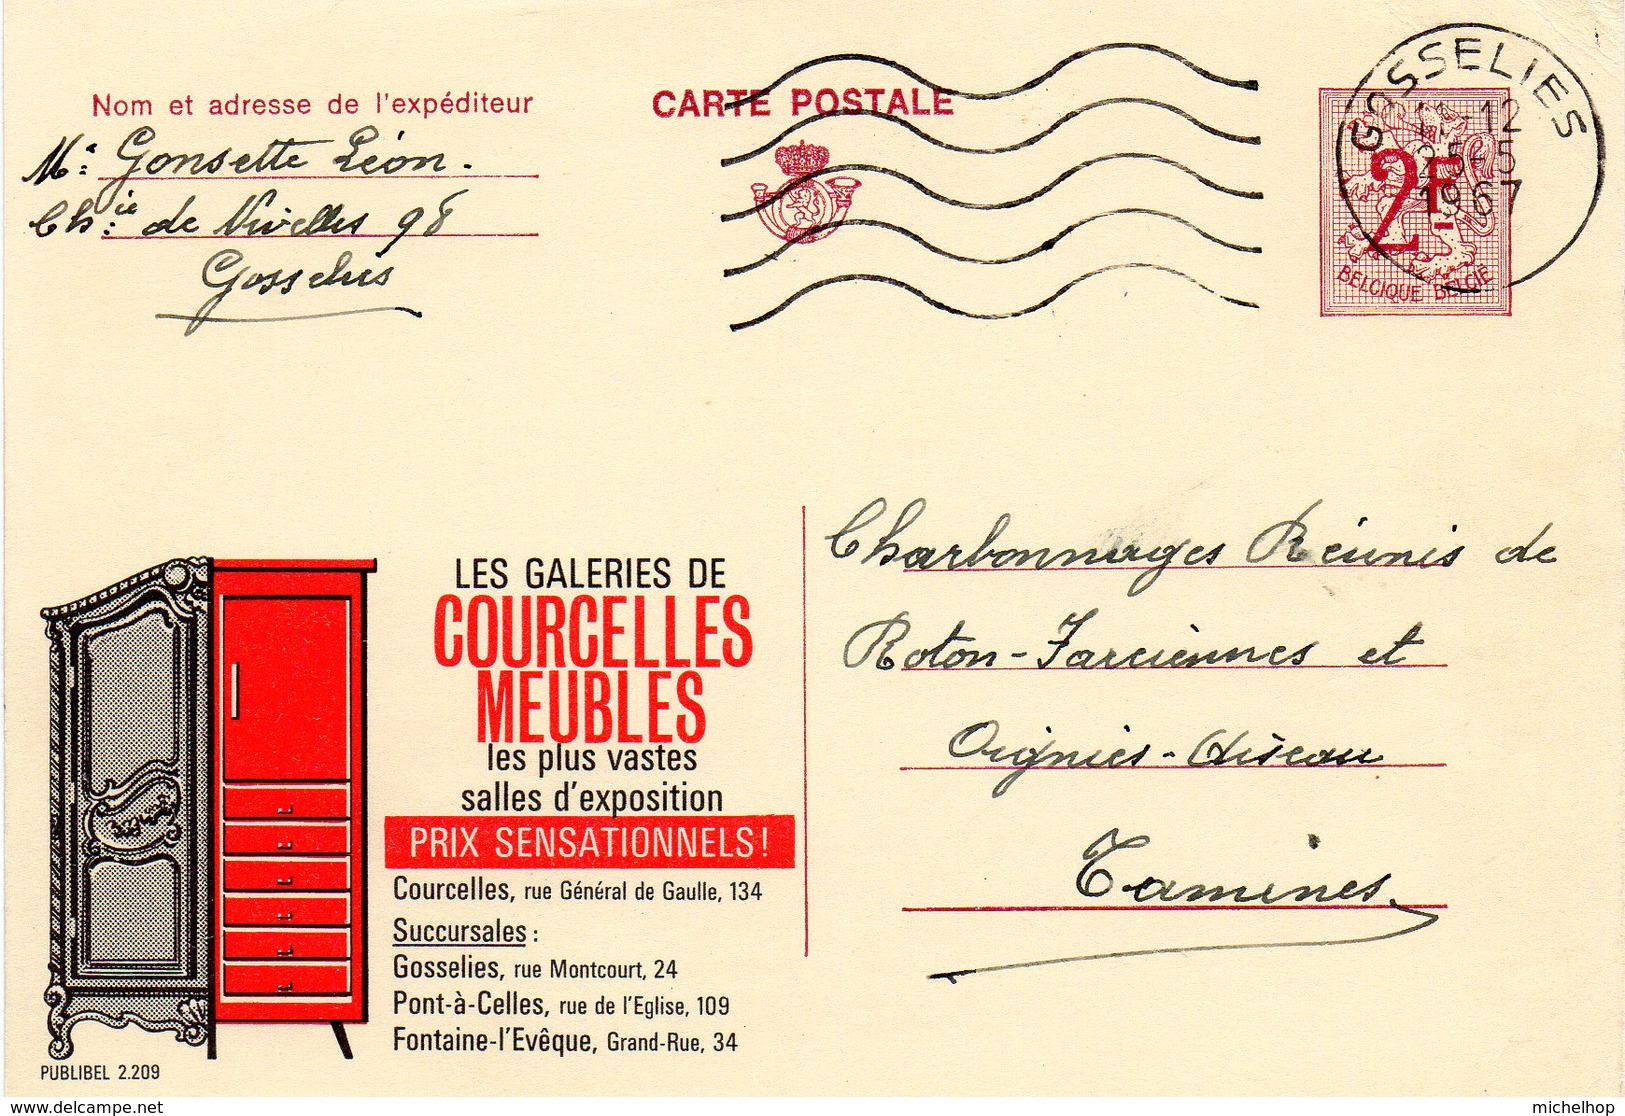 Nom et adresse de l'expéditeur
Mr Gonsette Léon.
Ch:ie de Nivelles 98
Gosselies
CARTE POSTALE
GOSSELIES
11-12
25-5
1967
2F
BELGIQUE BELGIË
LES GALERIES DE
COURCELLES
MEUBLES
les plus vastes
salles d'exposition
PRIX SENSATIONNELS!
Courcelles, rue Général de Gaulle, 134
Succursales :
Gosselies, rue Montcourt, 24
Pont-à-Celles, rue de l'Eglise, 109
Fontaine-l'Evêque, Grand-Rue, 34
PUBLIBEL 2.209
Charbonnages Réunis de
Roton-Farciennes et
Oignies-Aiseau
Tamines
www.delcampe.net
michelhop